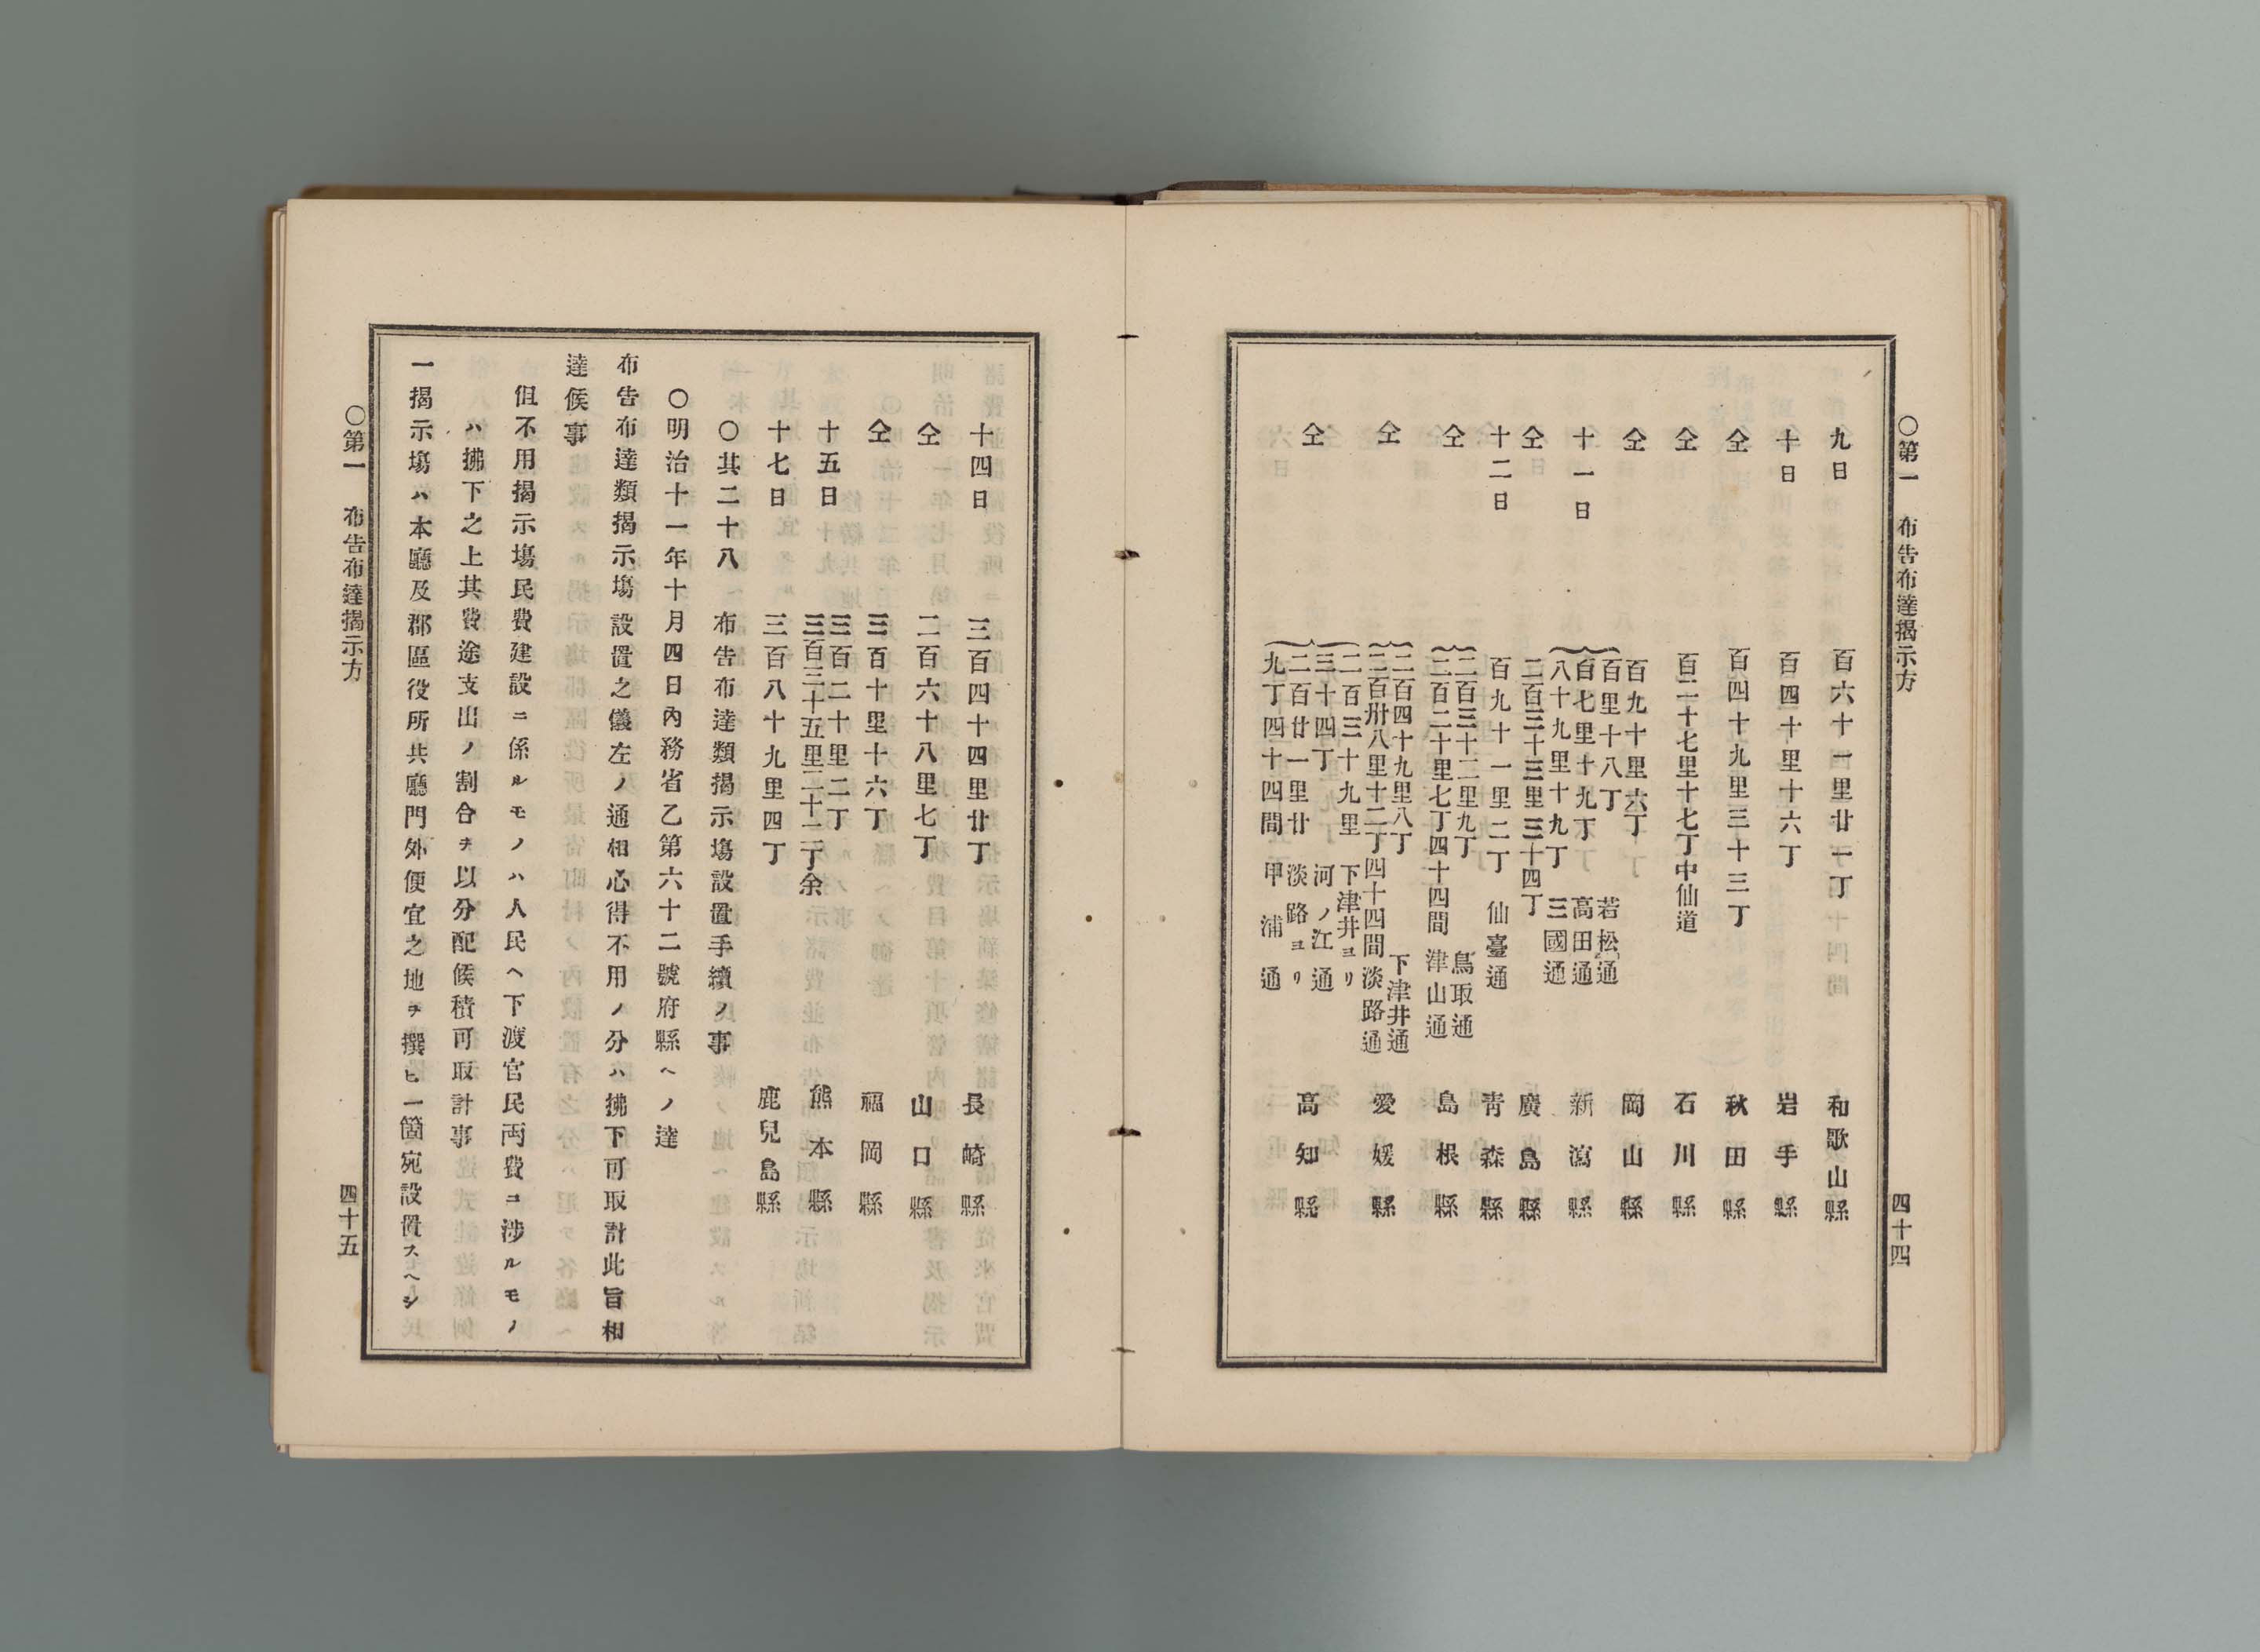 〇第一　布告布達揭示方　四十四
九日　百六十一里廿一丁　和歌山縣
十日　百四十里十六丁　岩手縣
仝　百四十九里三十三丁　秋田縣
仝　百二十七里十七丁中仙道　石川縣
仝　百九十里六丁　岡山縣
十一日　百里十八丁　若松通
百七里十九丁　高田通　新瀉縣
八十九里十九丁　三國通
仝　二百三十三里三十四丁　廣島縣
十二日　百九十一里二丁　仙臺通　靑森縣
仝　二百三十二里九丁　鳥取通
二百二十里七丁四十四間　津山通　島根縣
仝　二百四十九里八丁　下津井通
二百卅八里十二丁四十四間淡路通　愛媛縣
仝　二百三十九里　下津井ヨリ
三十四丁　河ノ江通
二百廿一里廿　淡路ヨリ　高知縣
九丁四十四間　甲浦通
十四日　三百四十四里廿丁　長崎縣
仝　二百六十八里七丁　山口縣
仝　三百十里十六丁　福岡縣
十五日　三百二十里二丁
三百三十五里二十二丁余　熊本縣
十七日　三百八十九里四丁　鹿兒島縣
〇其二十八　布告布達類揭示塲設置手續ノ事
〇明治十一年十月四日內務省乙第六十二號府縣ヘノ達
布告布達類揭示塲設置之儀左ノ通相心得不用ノ分ハ拂下可取計此旨相
達候事
但不用揭示塲民費建設ニ係ルモノハ人民ヘ下渡官民両費ニ涉ルモノ
ハ拂下之上其費途支出ノ割合ヲ以分配候積可取計事
一揭示塲ハ本廳及郡區役所共廳門外便宜之地ヲ撰ヒ一箇宛設置スヘシ
〇第一　布告布達揭示方　四十五